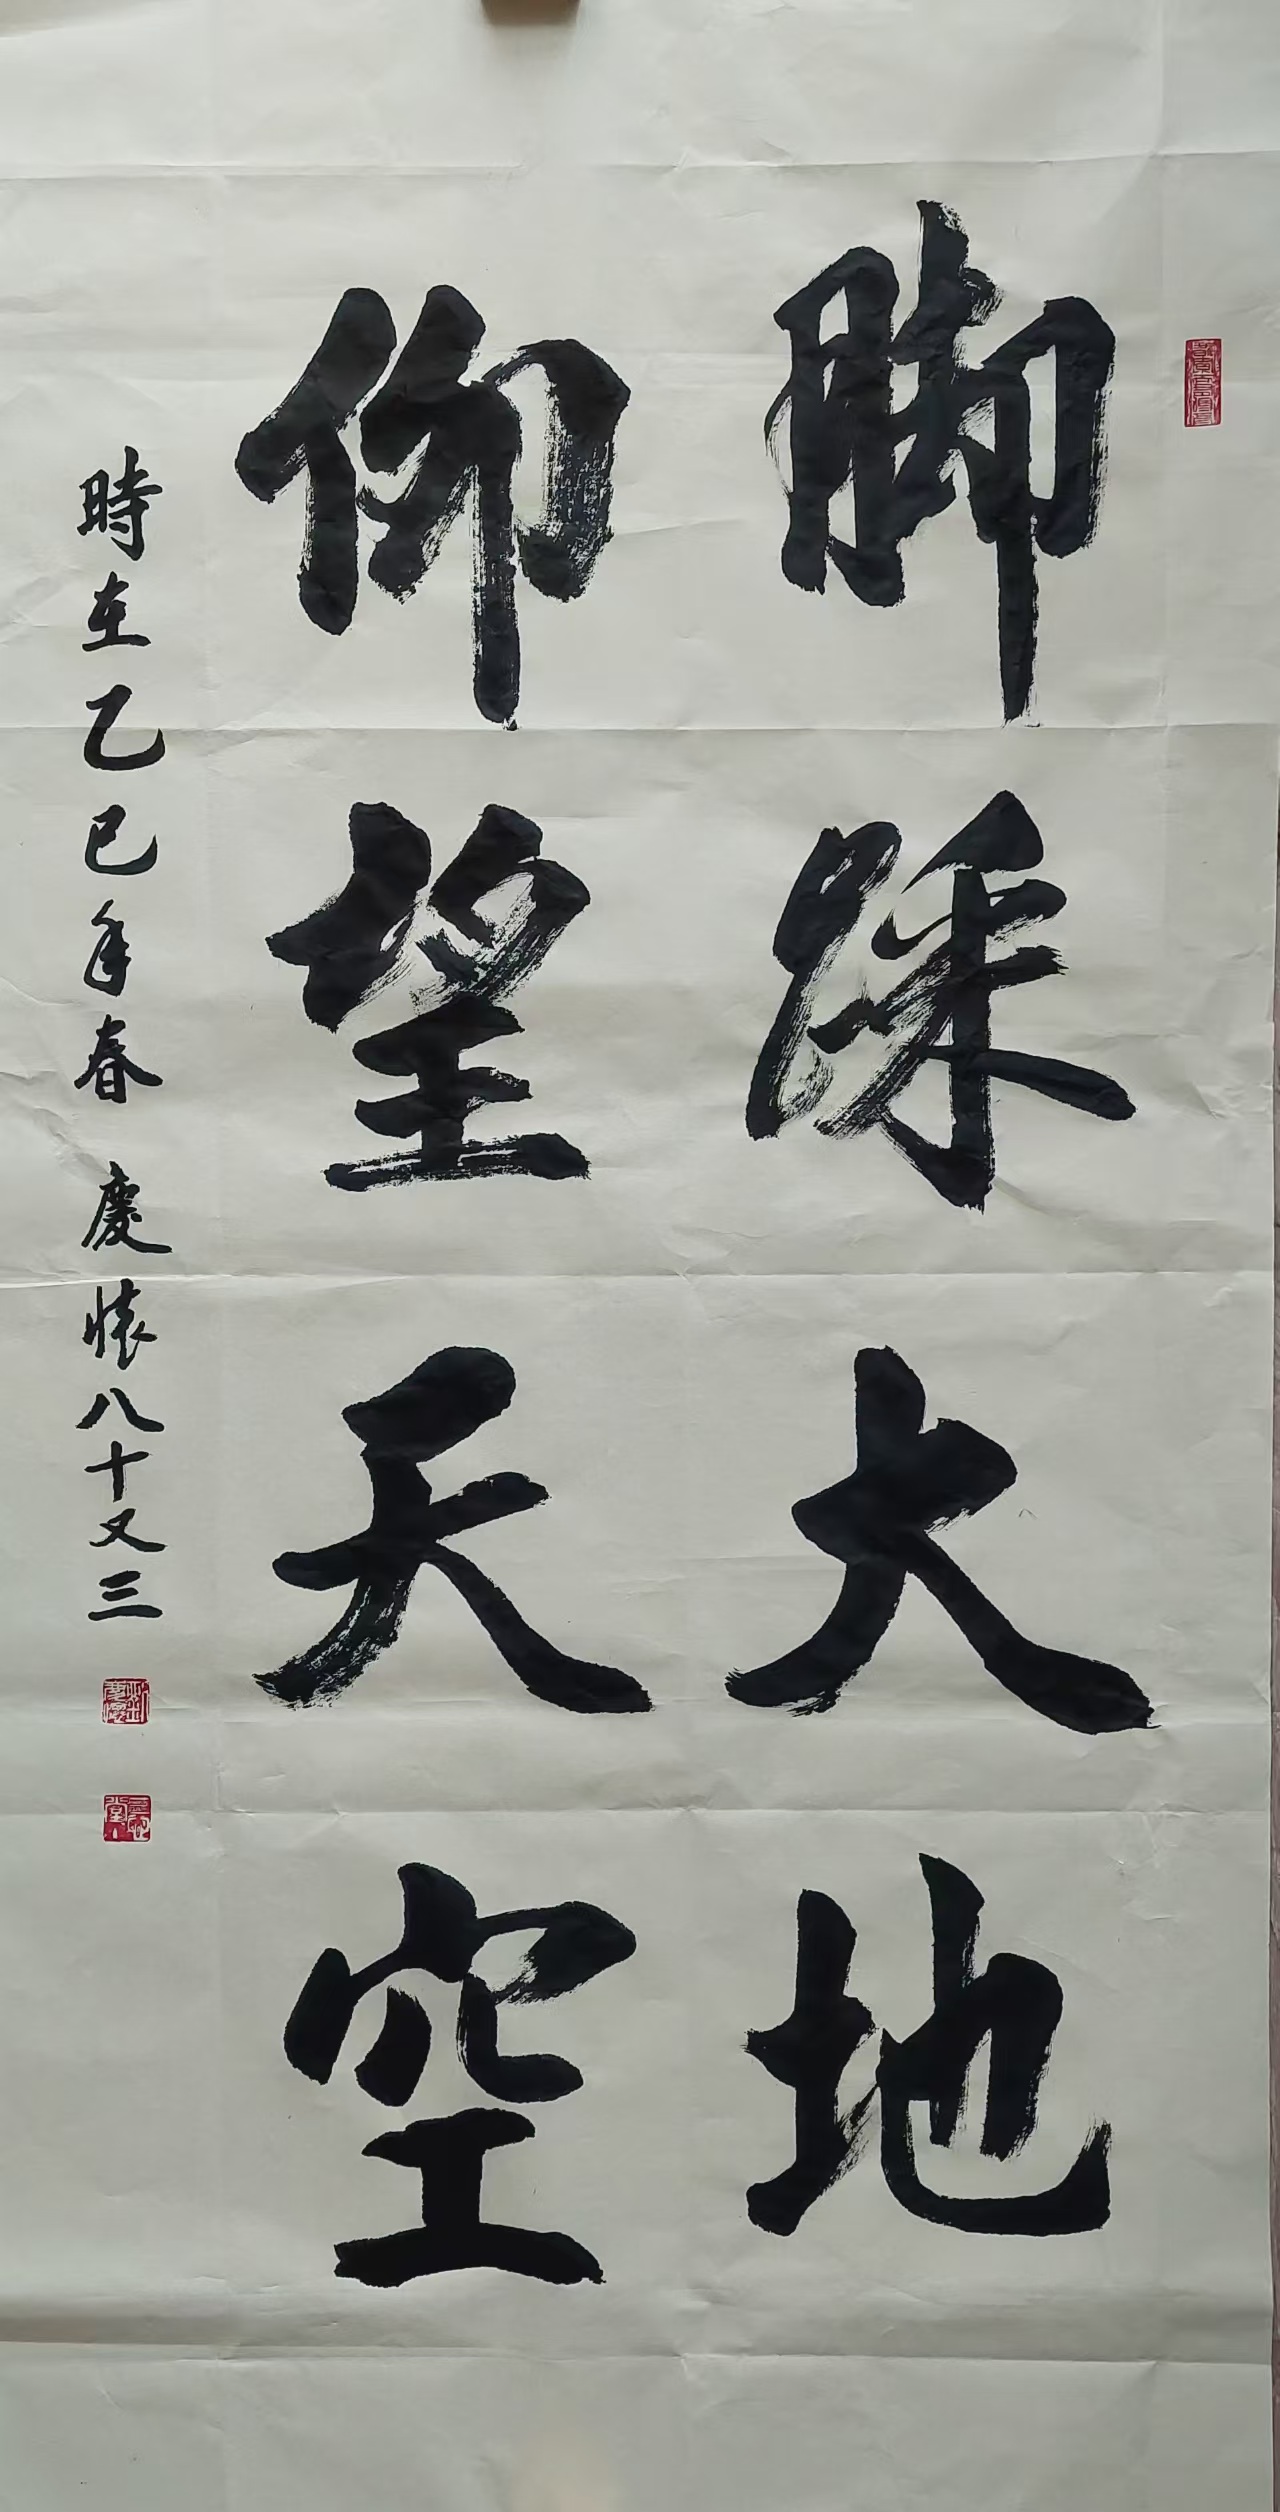 脚踩大地
仰望天空
時在乙巳年春 慶懷八十又三